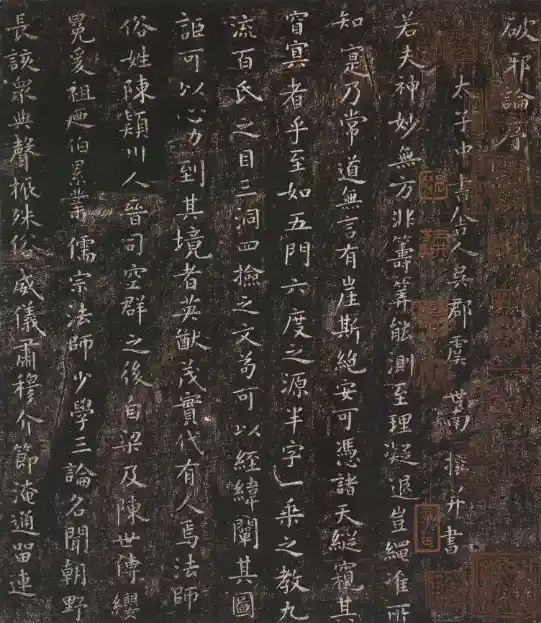 破邪論序
太子中書舍人吳郡虞世南撰并書
若夫神妙無方非籌筭能測至理凝邈豈繩准所
知寔乃常道無言有崖斯絶安可憑諸天縱窺其
窅冥者乎至如五門六度之源半字一乘之教九
流百氏之目三洞四撿之文苟可以經緯闡其圖
詎可以心力到其境者英猷茂實代有人焉法師
俗姓陳潁川人晉司空群之後自梁及陳世傳纓
冕爰祖迺伯累葉儒宗法師少學三論名聞朝野
長該衆典聲振殊俗威儀肅穆介節淹通留連